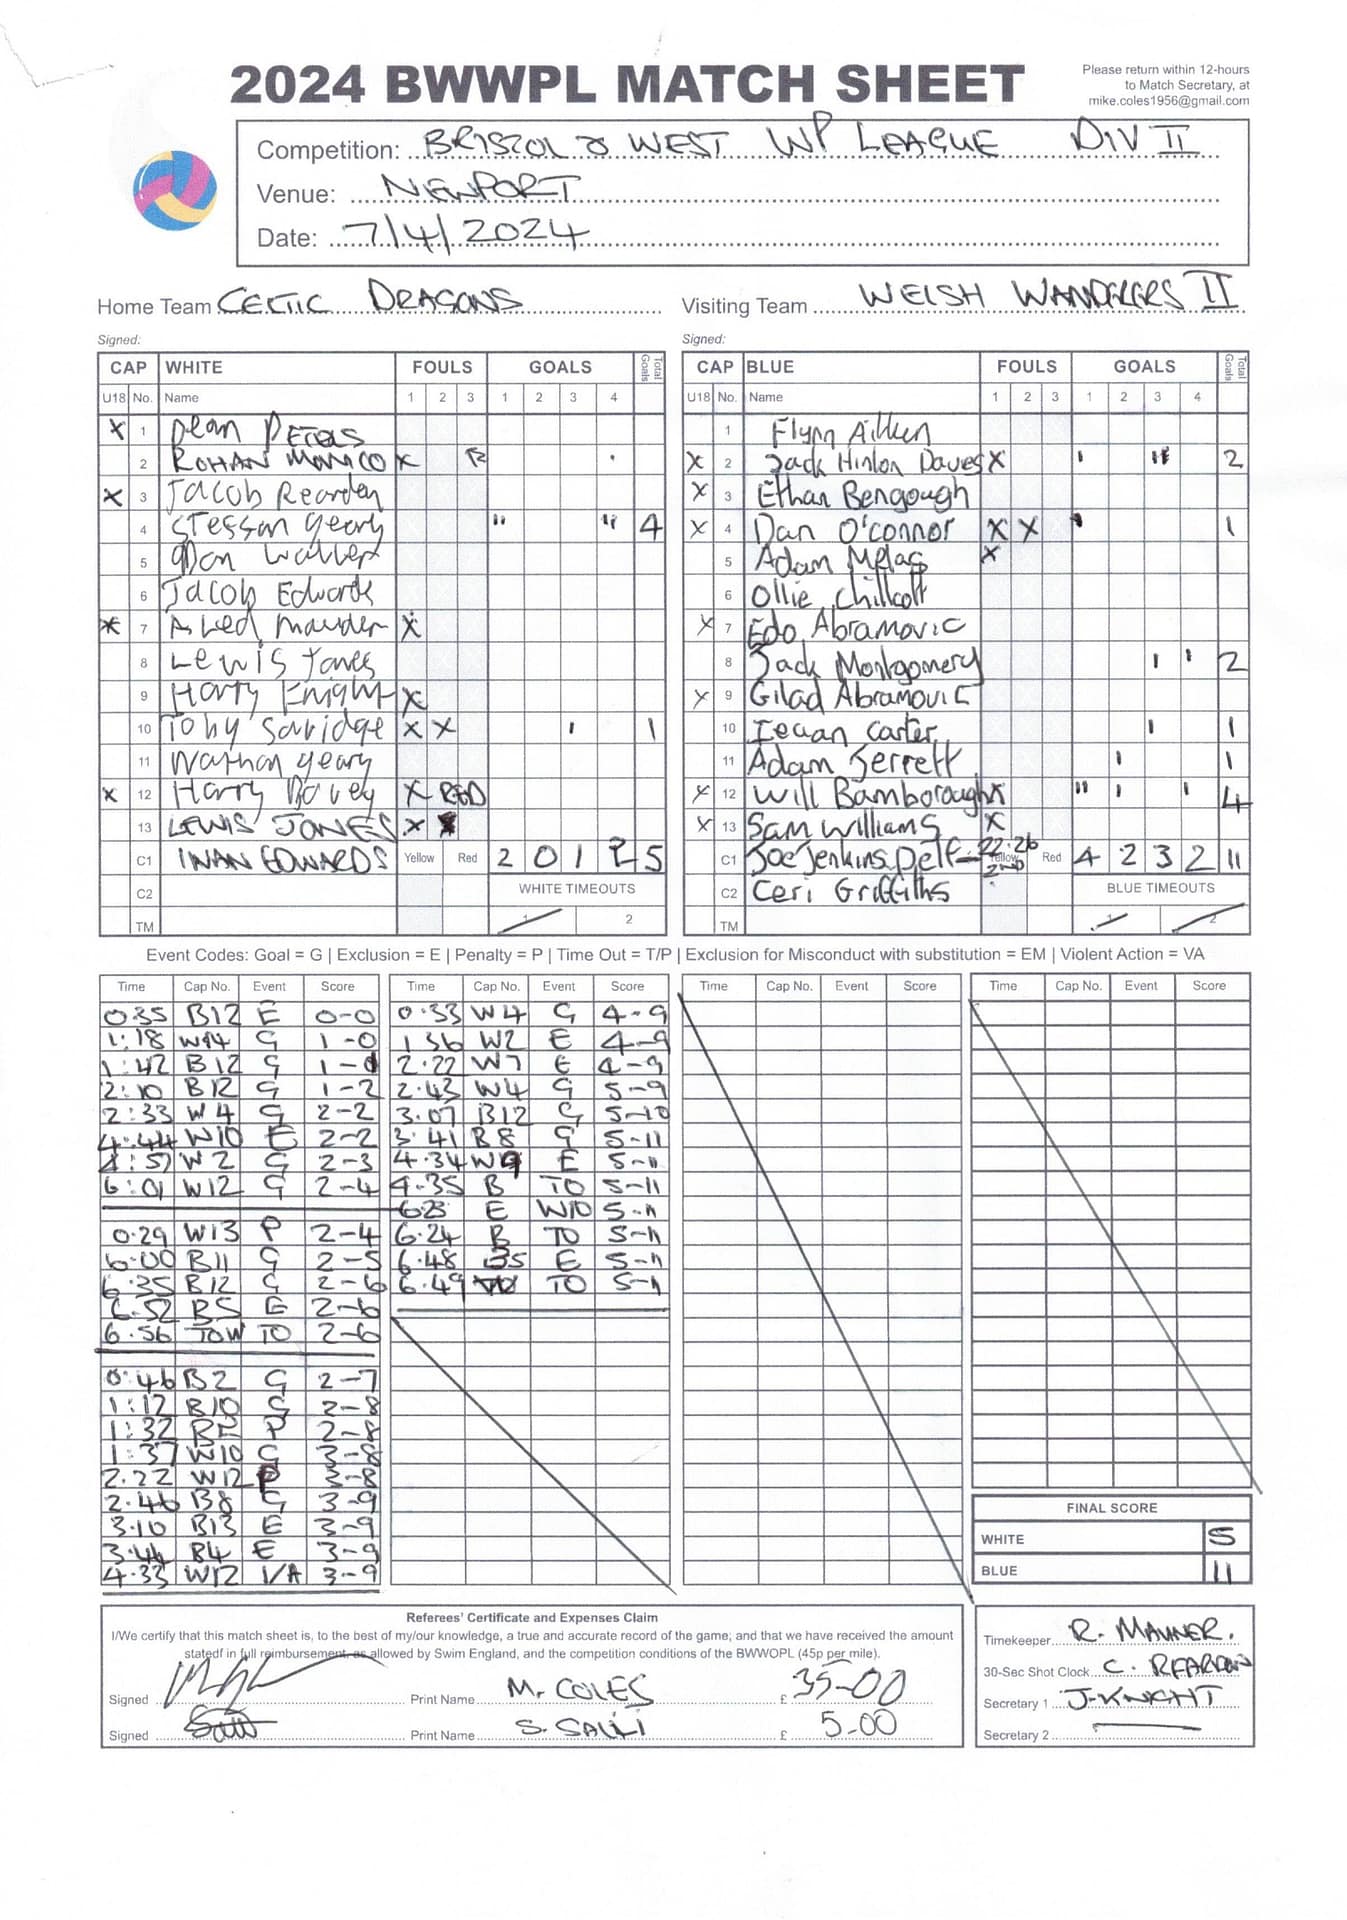 2024 BWWPL MATCH SHEET
Please return within 12-hours
to Match Secretary, at
mike.coles1956@gmail.com
Competition: BRISTOL & WEST WP LEAGUE DIV II
Venue: NEWPORT
Date: 7/4/2024
Home Team CELTIC DRAGONS
Visiting Team WELSH WANDERERS II
Signed:
Signed:
CAP WHITE FOULS GOALS Total Goals
U18 No. Name 1 2 3 1 2 3 4
X 1
2 ROHAN X
X 3 Jacob Rearden
4 geary " " 4
5
6 Jacob Edwards
X 7 X
8 Lewis Jones
9 Harry Knight X
10 Toby X X ı 1
11 geary
X 12 Harry X RED
13 LEWIS JONES X
C1 EDWARDS Yellow Red 2 0 1 2 5
C2 WHITE TIMEOUTS
TM 1 2
CAP BLUE FOULS GOALS Total Goals
U18 No. Name 1 2 3 1 2 3 4
1 Flynn Aitken
X 2 Jack Hinton Davies X ı 2
X 3 Ethan Bengough
X 4 Dan O'Connor X X ı 1
5 Adam X
6 Ollie Chillcott
X 7 Edo Abramovic
8 Jack Montgomery ı ı 2
X 9 Gilad Abramovic
10 Ieuan Carter ı 1
11 Adam Jerrett ı 1
X 12 Will Bamborough X " ı ı 4
X 13 Sam Williams X
C1 Joe Jenkins Delf 22.26 2ND Yellow Red 4 2 3 2 11
C2 Ceri Griffiths BLUE TIMEOUTS
TM 1 2
Event Codes: Goal = G | Exclusion = E | Penalty = P | Time Out = T/P | Exclusion for Misconduct with substitution = EM | Violent Action = VA
Time Cap No. Event Score
0.35 B12 E 0-0
1:18 G 1-0
1:42 B12 G
2:10 B12 G 1-2
2:33 W4 G 2-2
4:44 W10 E 2-2
W2 G 2-3
6:01 W12 G 2-4
0.29 W13 P 2-4
6.00 B11 G 2-5
6.35 B12 G 2-6
6.52 B5 E 2-6
6.56 TOW TO 2-6
0:46 B2 G 2-7
1:12 B10 G 2-8
1:32 P 2-8
1:37 W10 G 3-8
2.22 W12 P 3-8
2.46 B8 G 3-9
3.10 B13 E 3-9
3.44 B4 E 3-9
4.33 W12 VA 3-9
Time Cap No. Event Score
0.33 W4 G 4-9
1 56 W2 E 4-9
2.22 W7 E 4-9
2.43 W4 G 5-9
3.07 B12 G 5-10
3.41 B8 G 5-11
4.34 W9 E 5-11
4.35 B TO 5-11
E W10 5-11
6.24 B TO 5-11
6.48 B5 E 5-11
6.49 TO 5-11
Time Cap No. Event Score
Time Cap No. Event Score
FINAL SCORE
WHITE 5
BLUE 11
Referees' Certificate and Expenses Claim
I/We certify that this match sheet is, to the best of my/our knowledge, a true and accurate record of the game; and that we have received the amount
statedf in full reimbursement, as allowed by Swim England, and the competition conditions of the BWWOPL (45p per mile).
Signed Print Name M. COLES £ 35-00
Signed Print Name S. SALLI £ 5-00
Timekeeper R.
30-Sec Shot Clock C. REARDON
Secretary 1 J. KNIGHT
Secretary 2